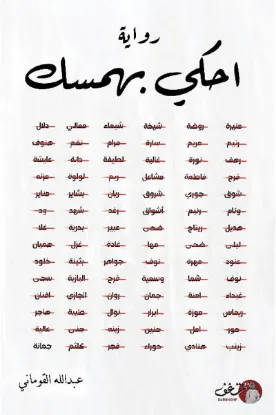 رواية
احكي بهمسك
منيرة روضة شيخة شيماء معالي دلال
رنيم مريم سارة مرام نغم هنوف
رهف نورة غالية لطيفة دانة عايشة
فرح فاطمة مشاعل ريم لولوة مزنه
شوق جوري شروق ريان بشاير مناير
وئام رنيم اشواق رغد شهد ود
هديل ريتاج ضحى عبير بدرية علا
ليلى ضحى مها غادة غزل هميان
عنود مهرة نوف جواهر بثينة خلود
نوف شما وسمية فرح اليازية سجى
غيداء امنة جمان روان افنان
ريماس موزة ابرار نوال هاجر
حور امل حنين زينه جنى عالية
زينب هنادي حوراء فجر كلثم جمانة
عبدالله القوماني